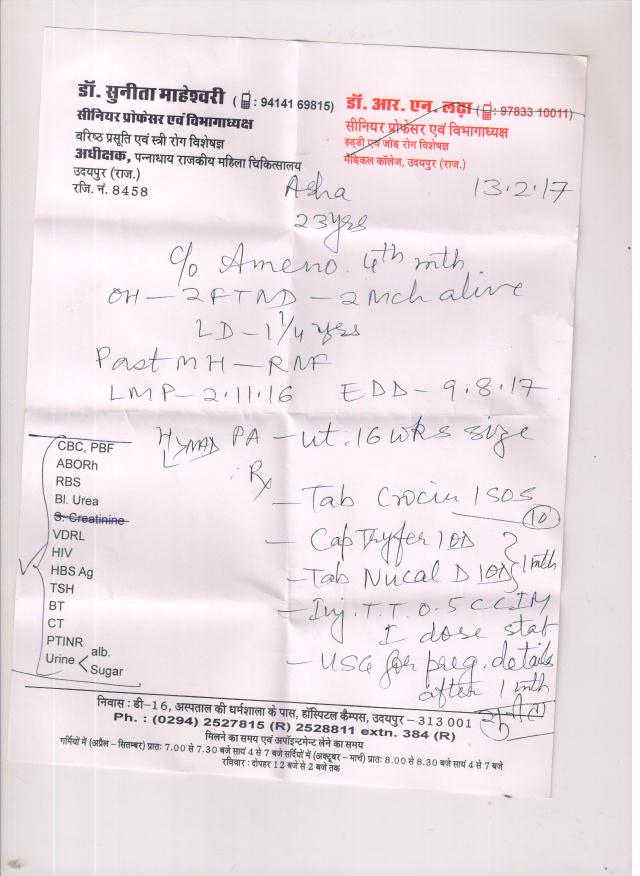 डॉ. सुनीता माहेश्वरी (: 94141 69815)
सीनियर प्रोफेसर एवं विभागाध्यक्ष
वरिष्ठ प्रसूति एवं स्त्री रोग विशेषज्ञ
अधीक्षक, पन्नाधाय राजकीय महिला चिकित्सालय
उदयपुर (राज.)
रजि. नं. 8458
डॉ. आर. एन. लढ़ा (: 97833 10011)
सीनियर प्रोफेसर एवं विभागाध्यक्ष
हड्डी एवं जोड़ रोग विशेषज्ञ
मेडिकल कॉलेज, उदयपुर (राज.)
Asha 13.2.17
23yrs
c/o Ameno. 4th mth
OH - 2FTND - 2 Mch alive
LD - 1 1/4 yrs
Past MH - RMF
LMP - 2.11.16 EDD - 9.8.17
PA - Ut. 16 wks size
Rx
- Tab Crocin 1 SOS
10
- Cap Tryfer 1 OD
- Tab Nucal D 1 OD
1 mth
- Inj. T.T. 0.5 CC IM
I dose stat
- USG for preg. details
after 1 mth
सुनीता
CBC, PBF
ABORh
RBS
Bl. Urea
S. Creatinine
VDRL
HIV
HBS Ag
TSH
BT
CT
PTINR
Urine < alb.
Sugar
निवास : डी-16, अस्पताल की धर्मशाला के पास, हॉस्पिटल कैम्पस, उदयपुर - 313 001
Ph. : (0294) 2527815 (R) 2528811 extn. 384 (R)
मिलने का समय एवं अपॉइन्टमेन्ट लेने का समय
गर्मियों में (अप्रैल - सितम्बर) प्रातः 7.00 से 7.30 बजे सायं 4 से 7 बजे सर्दियों में (अक्टूबर - मार्च) प्रातः 8.00 से 8.30 बजे सायं 4 से 7 बजे
रविवार : दोपहर 12 बजे से 2 बजे तक